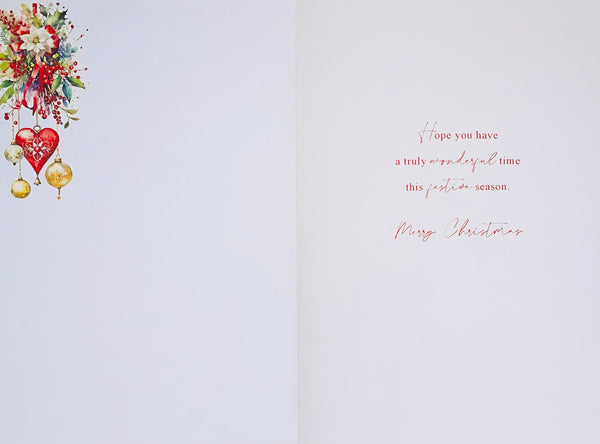 Hope you have
a truly wonderful time
this festive season.
Merry Christmas